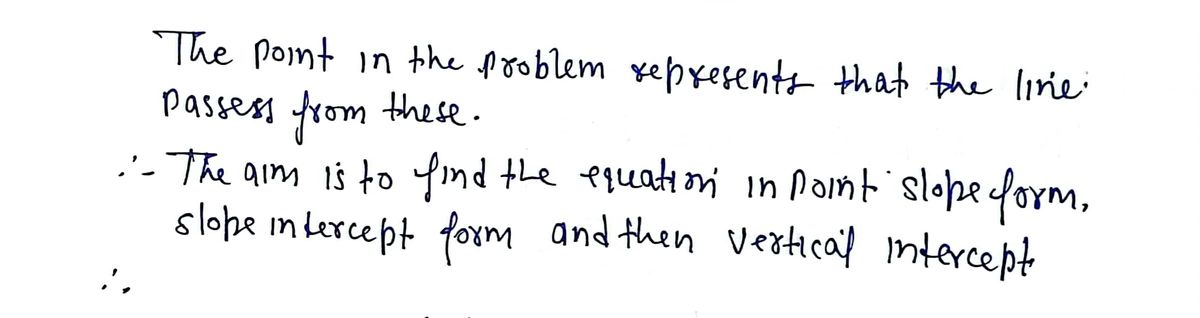 The point in the problem represents that the line
passess from these.
∴- The aim is to find the equation in point slope form,
slope intercept form and then vertical intercept
∴